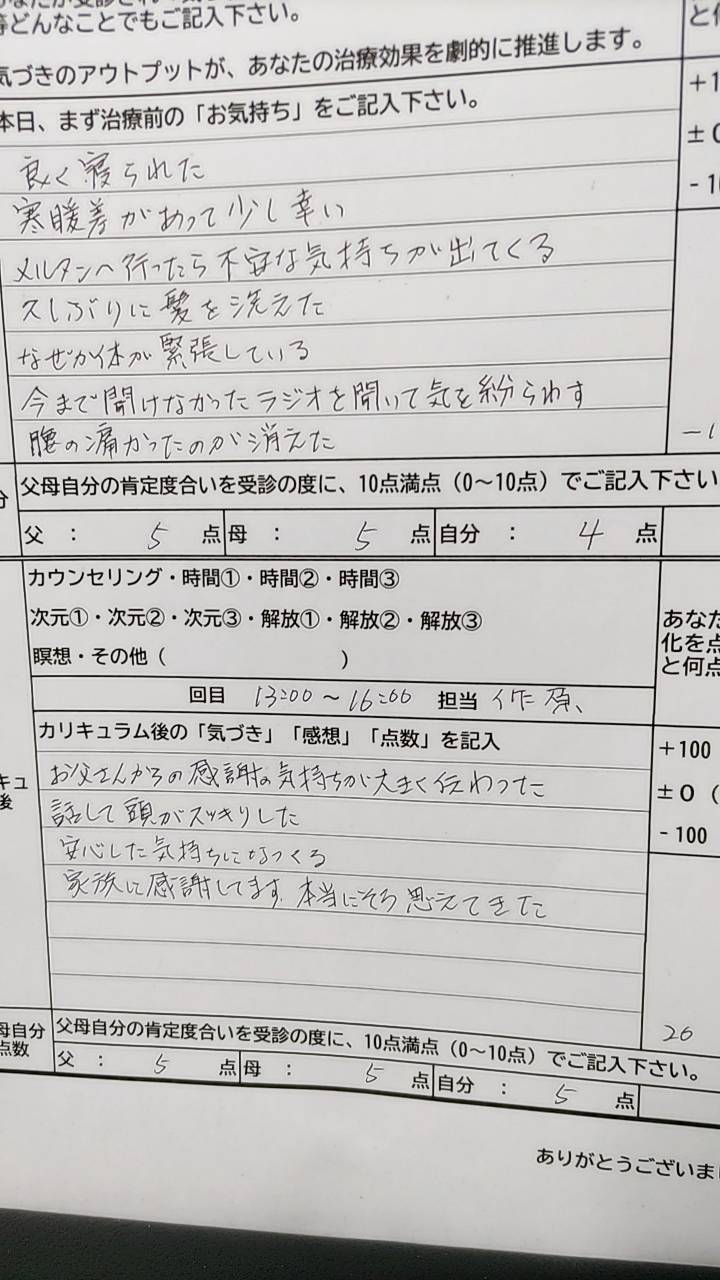 等どんなことでもご記入下さい。
気づきのアウトプットが、あなたの治療効果を劇的に推進します。
本日、まず治療前の「お気持ち」をご記入下さい。
+1
±0
-10
良く寝られた
寒暖差があって少し辛い
メルタンへ行ったら不安な気持ちが出てくる
久しぶりに髪を洗えた
なぜか体が緊張している
今まで聞けなかったラジオを聞いて気を紛らわす
腰の痛かったのが消えた
-1
父母自分の肯定度合いを受診の度に、10点満点（0～10点）でご記入下さい
父 ： 5 点 母 ： 5 点 自分 ： 4 点
カウンセリング・時間①・時間②・時間③
次元①・次元②・次元③・解放①・解放②・解放③
瞑想・その他（ ）
あなた
化を点
と何点
回目 13:00～16:00 担当 作原、
カリキュラム後の「気づき」「感想」「点数」を記入
+100
±0（
-100
キュ
後
お父さんからの感謝の気持ちが大きく伝わった
話して頭がスッキリした
安心した気持ちになってくる
家族に感謝してます。本当にそう思えてきた
20
母自分
点数
父母自分の肯定度合いを受診の度に、10点満点（0～10点）でご記入下さい。
父 ： 5 点 母 ： 5 点 自分 ： 5 点
ありがとうございま